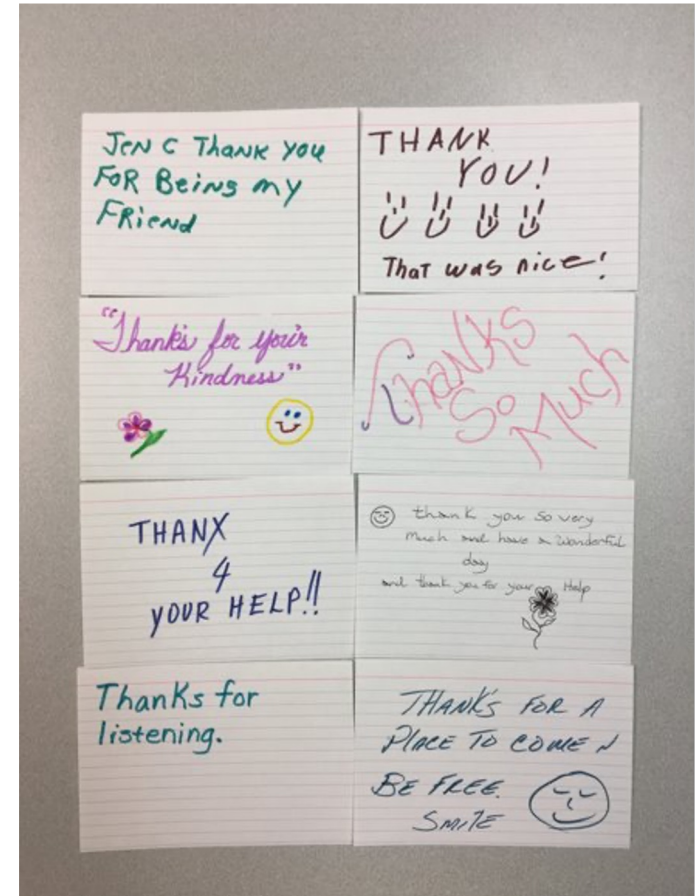 JEN C THANK YOU
FOR BEING MY
FRIEND
THANK
YOU!
THAT WAS NICE!
"Thank's for your
Kindness"
THANKS
SO
MUCH
THANX
4
YOUR HELP!!
thank you so very
much and have a wonderful
day
and thank you for your Help
Thanks for
listening.
THANK'S FOR A
PLACE TO COME N
BE FREE.
SMILE